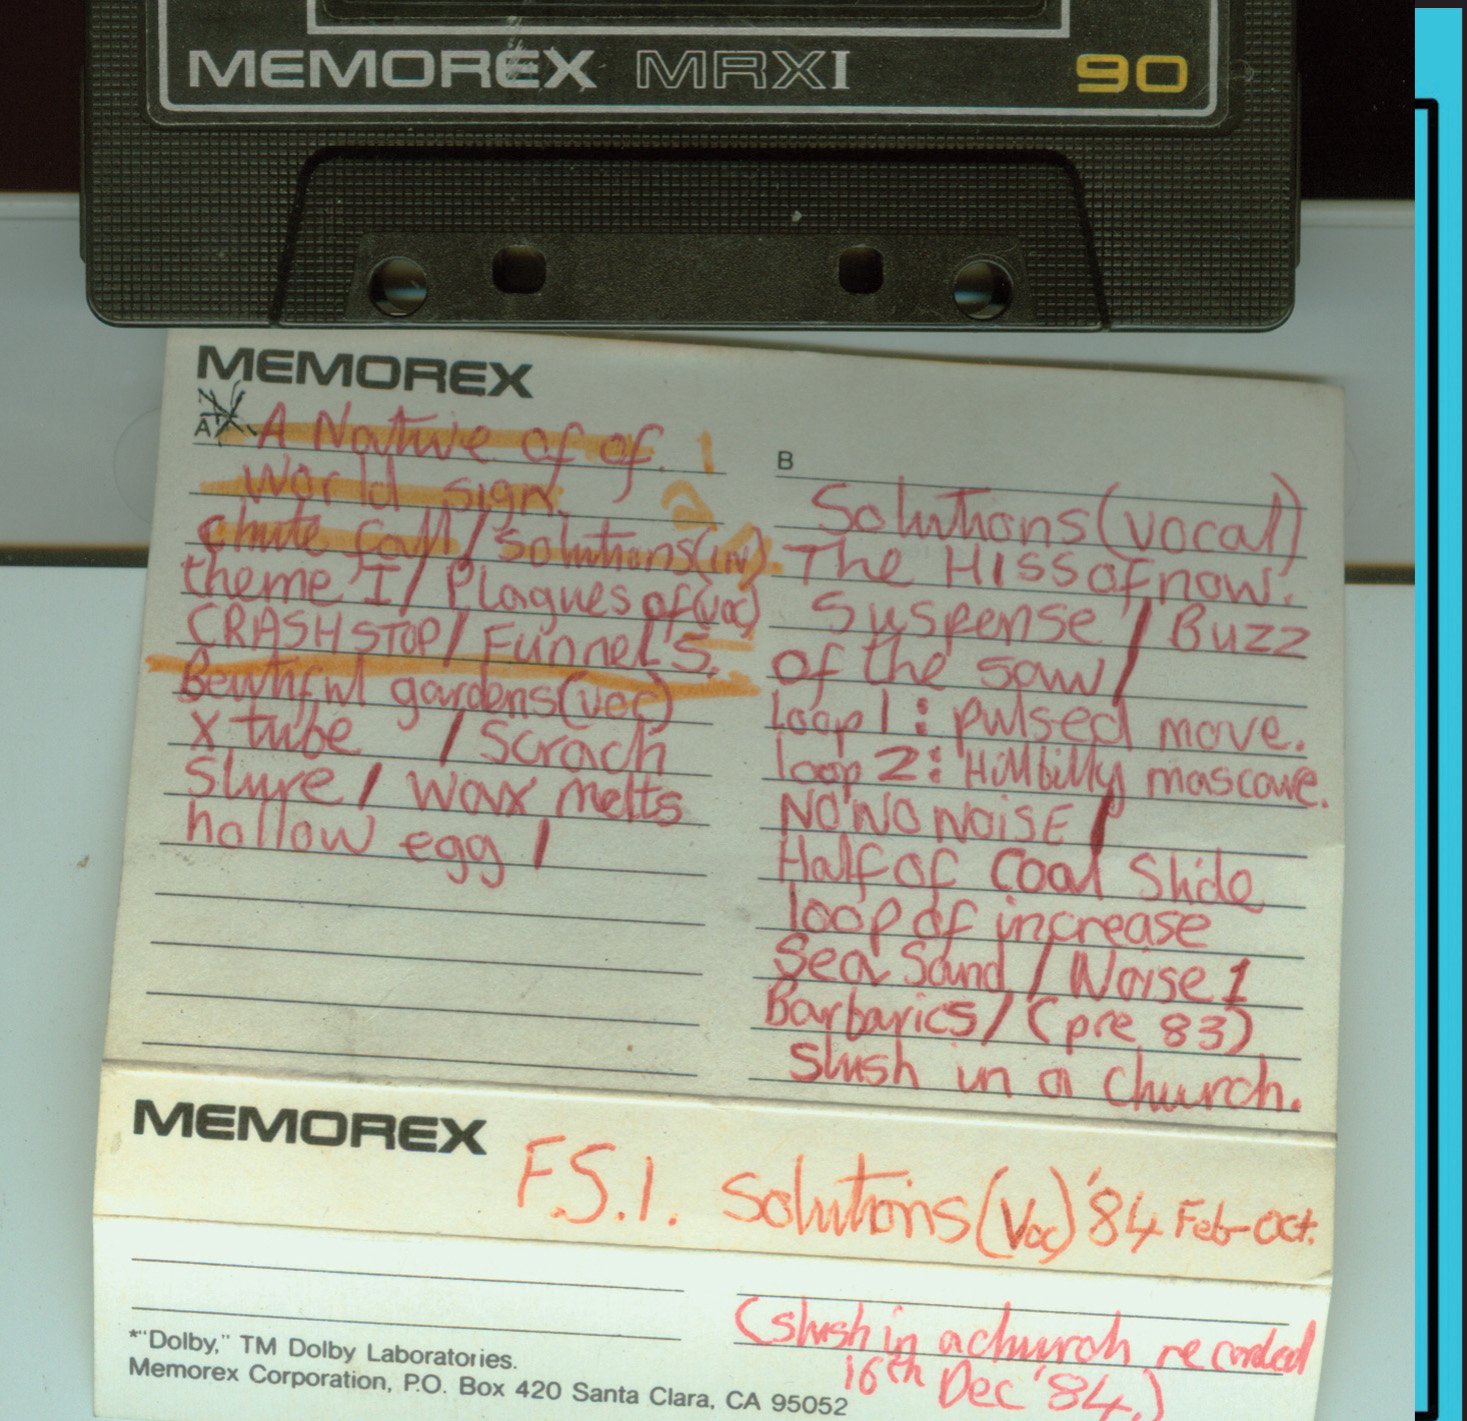 MEMOREX MRXI 90
MEMOREX
A
A Native of of. 1
World sign. 2
chute fall / Solutions (liv).
theme I / Plagues of (voc)
CRASH STOP / Funnel S.
Bewtiful gardens (voc)
X tube / Scrach
Slure / Wax Melts
hollow egg /
B
Solutions (vocal)
The Hiss of now.
Suspense / Buzz
of the saw /
loop 1 : pulsed move.
loop 2 : Hillbilly mascave.
NO'NO NOISE /
Half of Coal Slide
loop of increase
Sea Sand / Noise 1
Barbarics / (pre 83)
Slush in a church.
MEMOREX
F.S.I. Solutions (Voc) '84 Feb-Oct.
(slush in a church recorded
16th Dec '84.)
*"Dolby," TM Dolby Laboratories.
Memorex Corporation, P.O. Box 420 Santa Clara, CA 95052